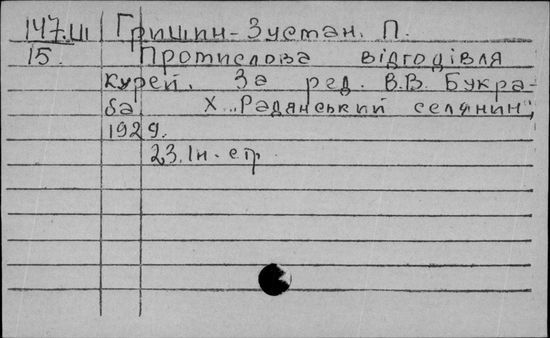 147.III Гришин-Зустан. П.
15. Протислова відгодівля
курей. За ред. В.В. Букра-
ба Х. „Радянський селянин",
1929.
23.Ін. стр.